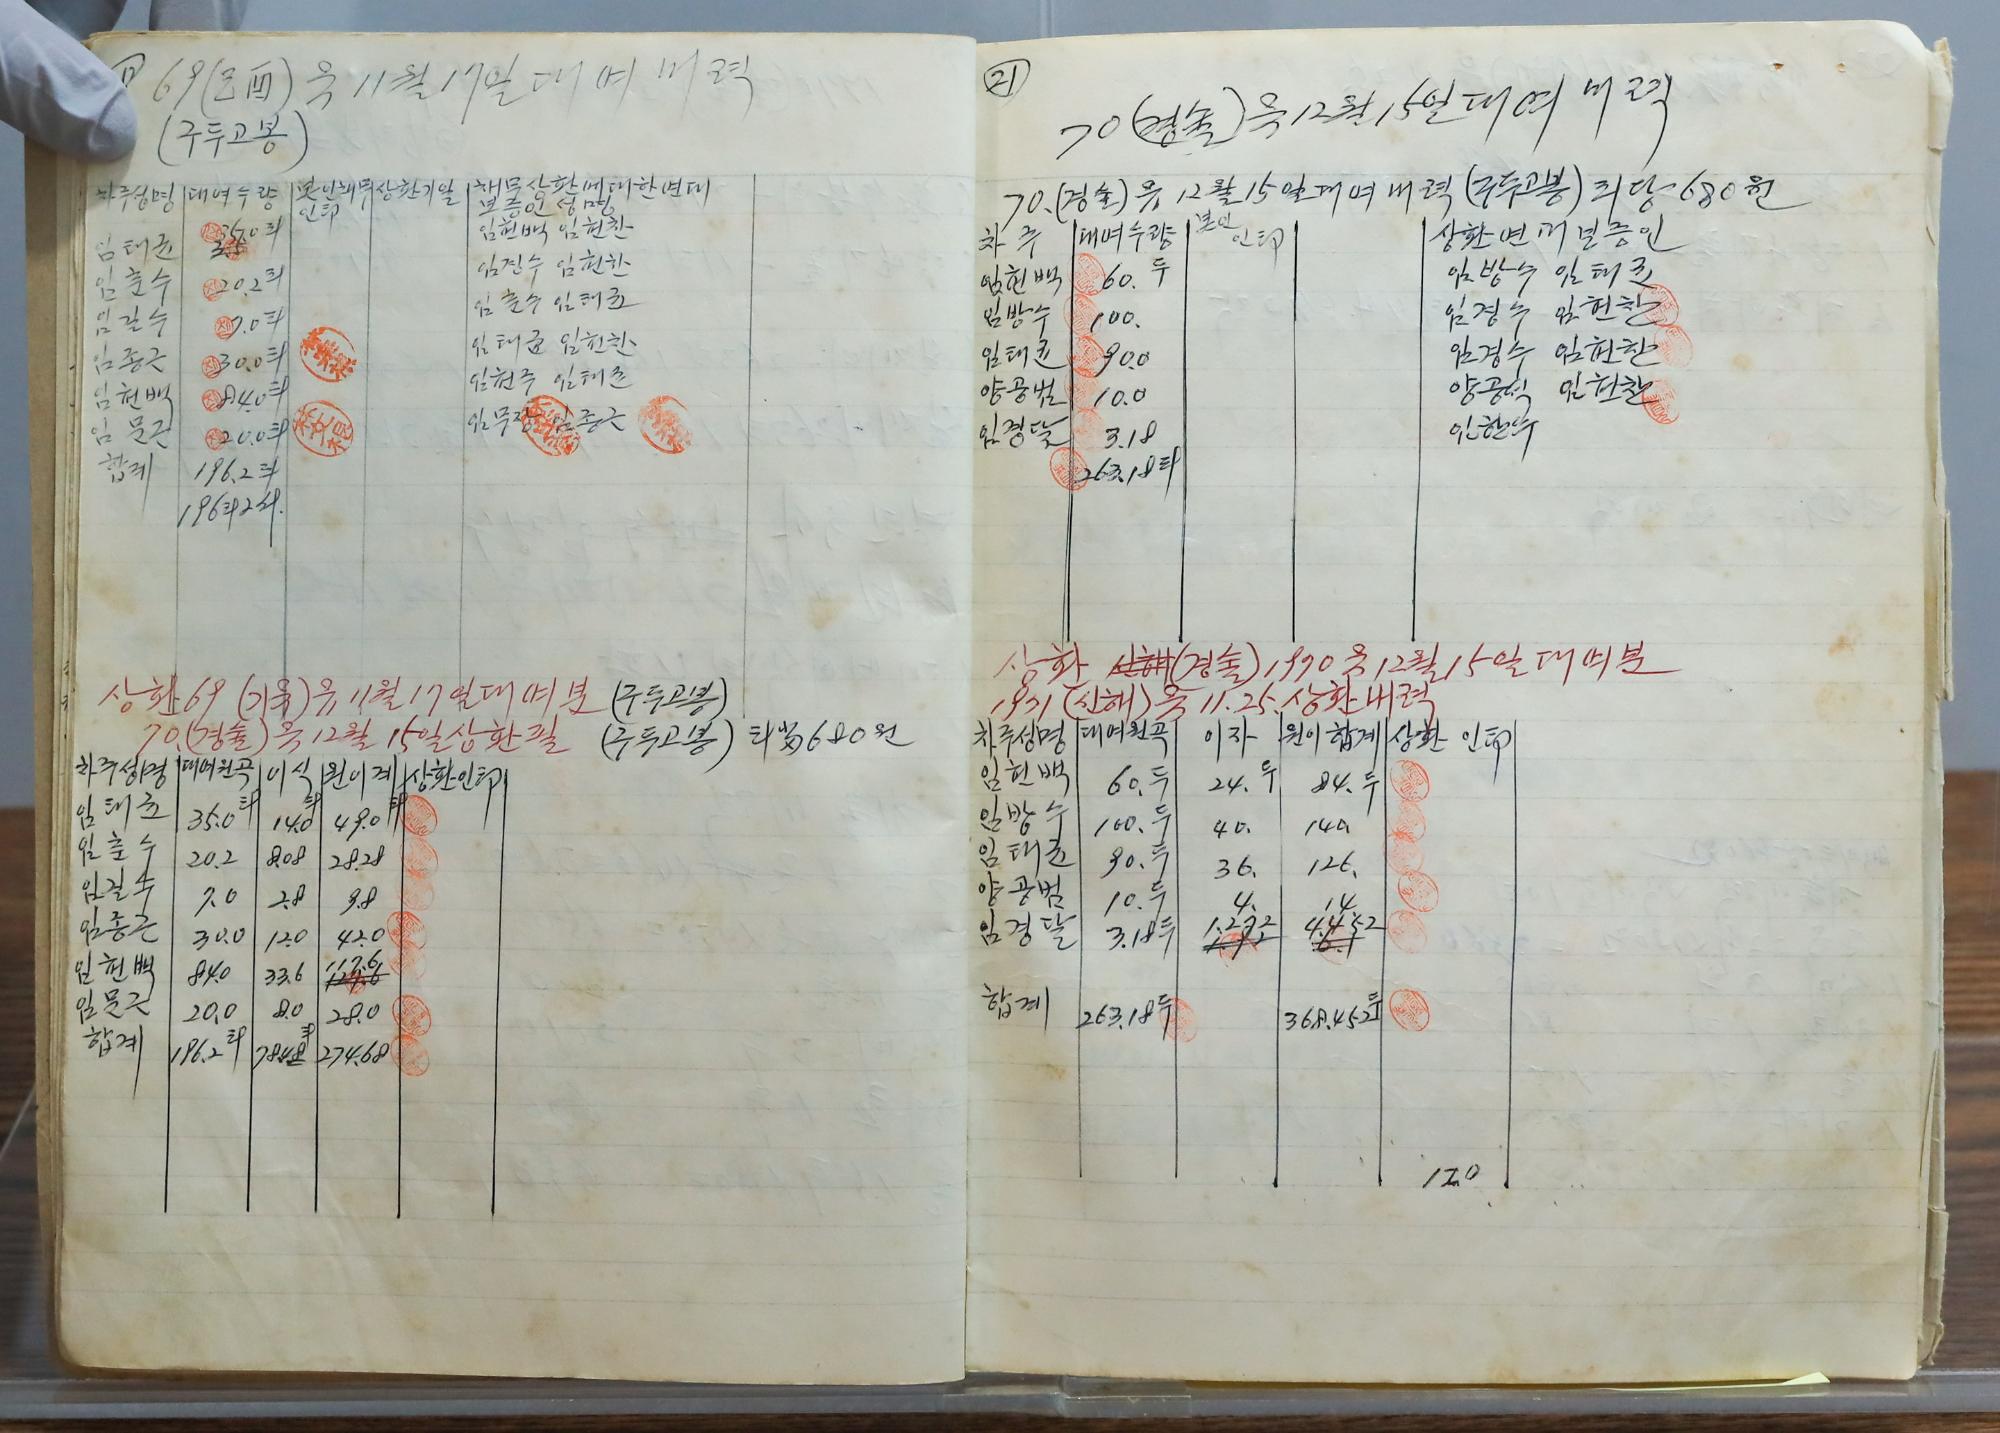 69(己酉)음 11월 17일 대여 내력
(구두고봉)
차주성명 대여수량 본인채무인印 상환기일 채무상환에대한연대보증인 성명
임태균 35.0 두 임헌백 임헌찬
임춘수 20.2두 임경수 임헌찬
임길수 7.0두 임춘수 임태균
임종근 30.0두 임태균 임헌찬
임헌백 84.0두 임헌주 임태균
임문근 20.0두 임종근
합계 196.2두
196두2
상환 69 (기유)음 11월 17일 대여분 (구두고봉)
70.(경술)음 12월 15일 상환필 (구두고봉) 680원
차주성명 대여원곡 이식 원이계 상환인印
임태균 35.0두 14.0두 49.0두
임춘수 20.2 8.08 28.28
임길수 7.0 2.8 9.8
임종근 30.0 12.0 42.0
임헌백 84.0 33.6 117.6
임문근 20.0 8.0 28.0
합계 196.2두 78.48두 274.68
21
70(경술)음 12월 15일 대여 내력
70.(경술)음 12월 15일 대여 내력 (구두고봉) 두당 680원
차주 대여수량 본인인印 상환연대보증인
임헌백 60.두 임방수 임태균
임방수 100. 임경수 임헌찬
임태균 90.0 임경수 임헌찬
양공범 10.0 양공식 임헌찬
임경달 3.18
263.18두
상환 (경술)1970음 12월 15일 대여분
1971(신해)음 11.25.상환내력
차주성명 대여원곡 이자 원이합계 상환 인印
임헌백 60.두 24.두 84.두
임방수 100.두 40. 140.
임태균 90.두 36. 126.
양공범 10.두 4. 14.
임경달 3.18두 1.272 4.452
합계 263.18두 368.452두